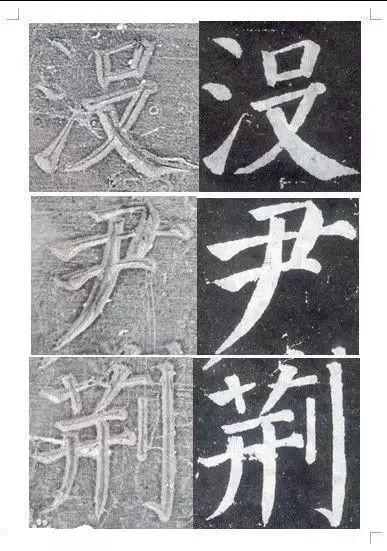 没 没
尹 尹
荆 荆